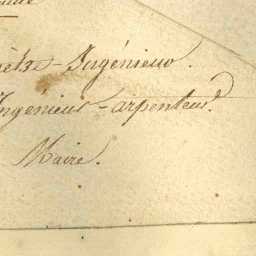 Ingénieur.
Ingénieur-arpenteur.
Maire.